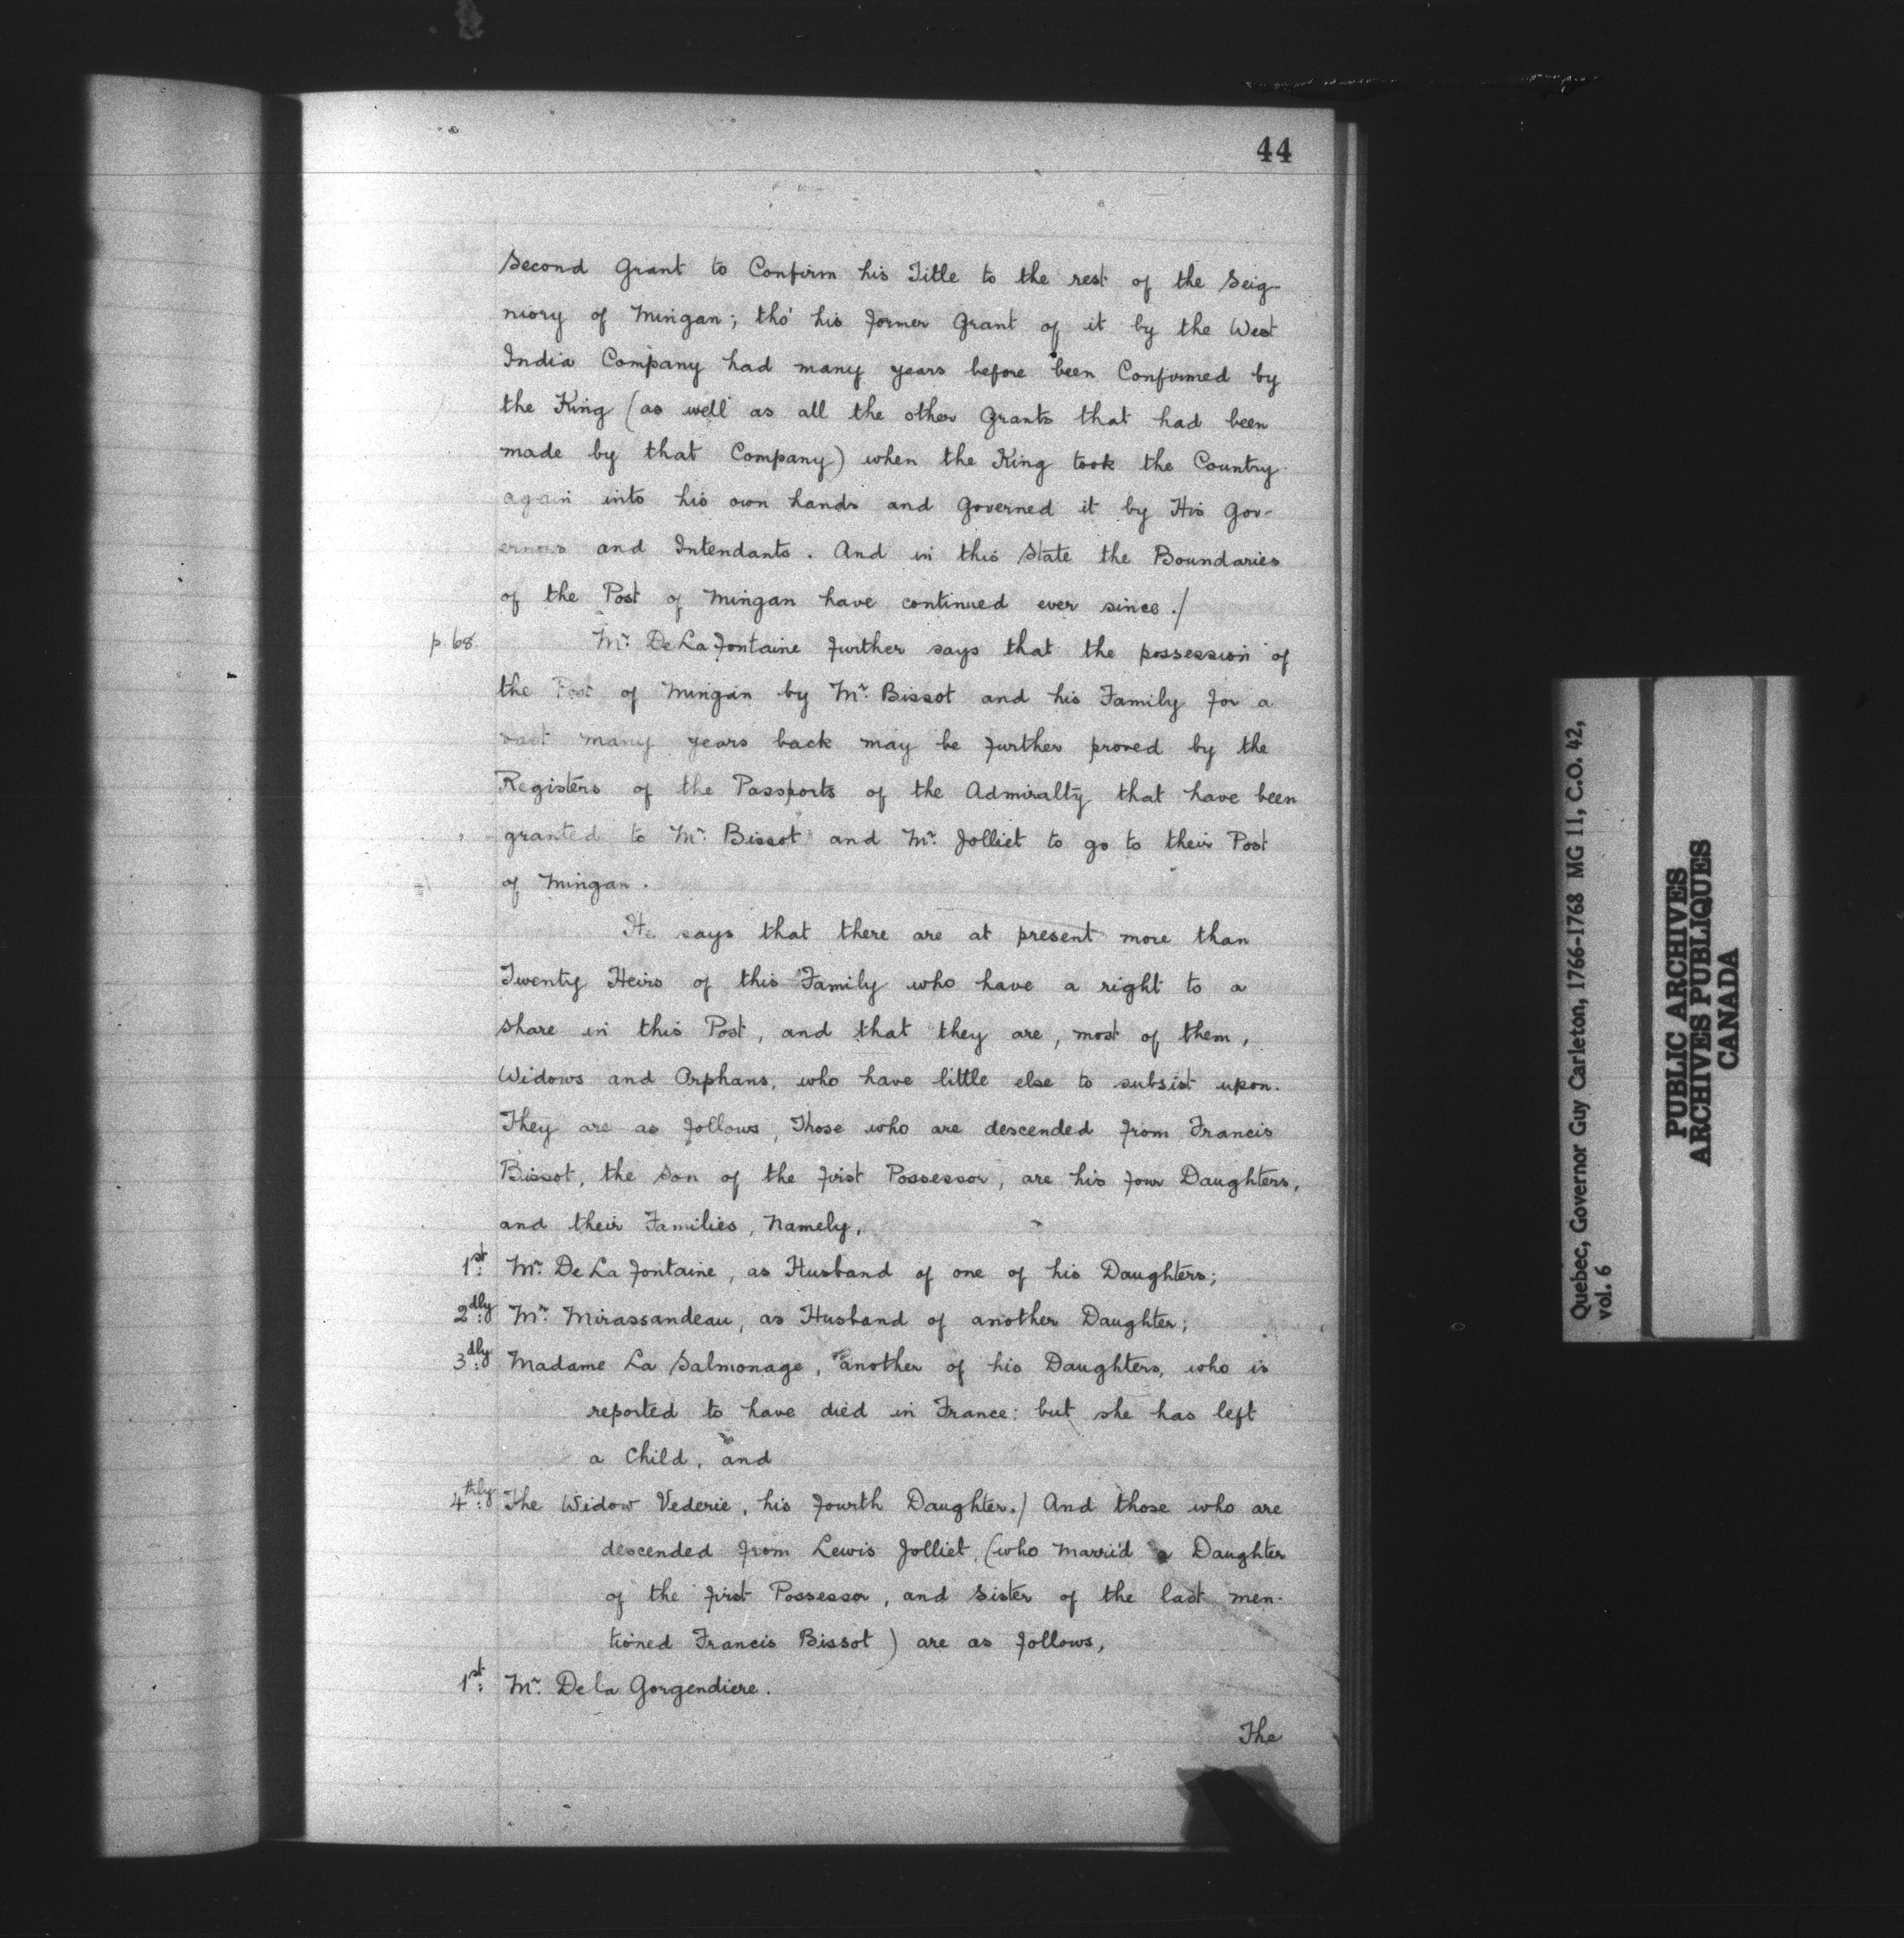 44
Second Grant to Confirm his Title to the rest of the Seig-
niory of Mingan; tho' his former Grant of it by the West
India Company had many years before been Confirmed by
the King (as well as all the other Grants that had been
made by that Company) when the King took the Country
again into his own hands and Governed it by His Gov-
ernors and Intendants. And in this State the Boundaries
of the Post of Mingan have continued ever since./
p. 68. Mr. De La Fontaine further says that the possession of
the Post of Mingan by Mr. Bissot and his Family for a
vast many years back may be further proved by the
Registers of the Passports of the Admiralty that have been
granted to Mr. Bissot and Mr. Jolliet to go to their Post
of Mingan.
He says that there are at present more than
Twenty Heirs of this Family who have a right to a
Share in this Post, and that they are, most of them,
Widows and Orphans, who have little else to subsist upon.
They are as follows, Those who are descended from Francis
Bissot, the Son of the first Possessor, are his four Daughters,
and their Families, Namely,
1st: Mr. De La Fontaine, as Husband of one of his Daughters;
2dly: Mr. Mirassandeau, as Husband of another Daughter;
3dly: Madame La Salmonage, another of his Daughters, who is
reported to have died in France: but she has left
a Child, and
4thly: The Widow Vederic, his fourth Daughter./ And those who are
descended from Lewis Jolliet, (who Marri'd a Daughter
of the first Possessor, and Sister of the last men-
tioned Francis Bissot) are as follows,
1st: Mr. De la Gorgendiere.
The
Quebec, Governor Guy Carleton, 1766-1768 MG 11, C.O. 42,
vol. 6
PUBLIC ARCHIVES
ARCHIVES PUBLIQUES
CANADA